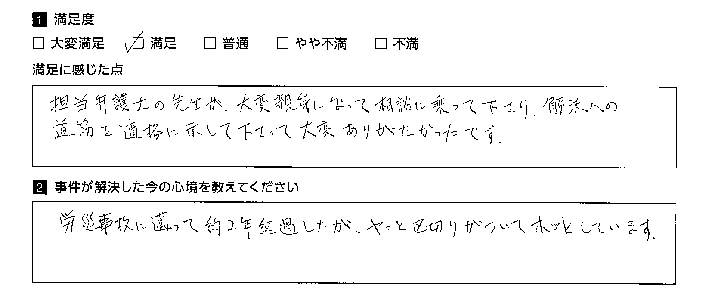 1 満足度
□ 大変満足 ☑ 満足 □ 普通 □ やや不満 □ 不満
満足に感じた点
担当弁護士の先生が、大変親身になって相談に乗って下さり、解決への
道筋を適格に示して下さって大変ありがたかったです。
2 事件が解決した今の心境を教えてください
労災事故に遭って約2年経過したが、やっと区切りがついてホッとしています。